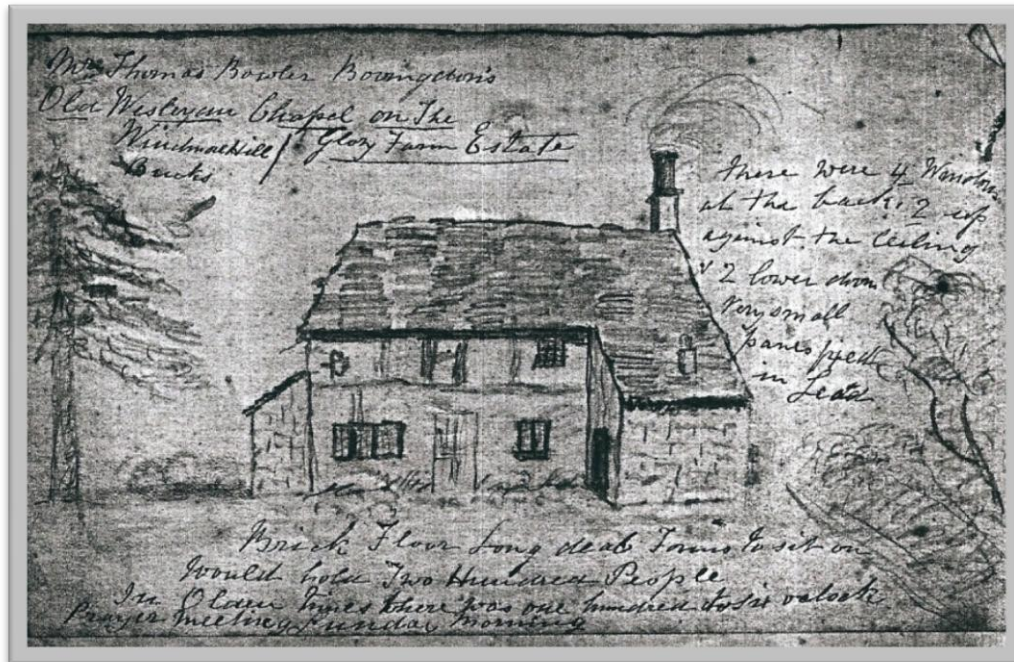 Mrs Thomas Bowler Bovingdon's
Old Wesleyan Chapel on The
Windmoor Hill / Glory Farm Estate
Bucks
there were 4 Windows
at the back, 2 up
against the Ceiling
& 2 lower down
very small
panes fixed
in Lead
Brick Floor Long deal Forms to sit on
Would hold Two Hundred People
In Olden times there was one hundred to six oclock
Prayer Meeting Sunday Morning